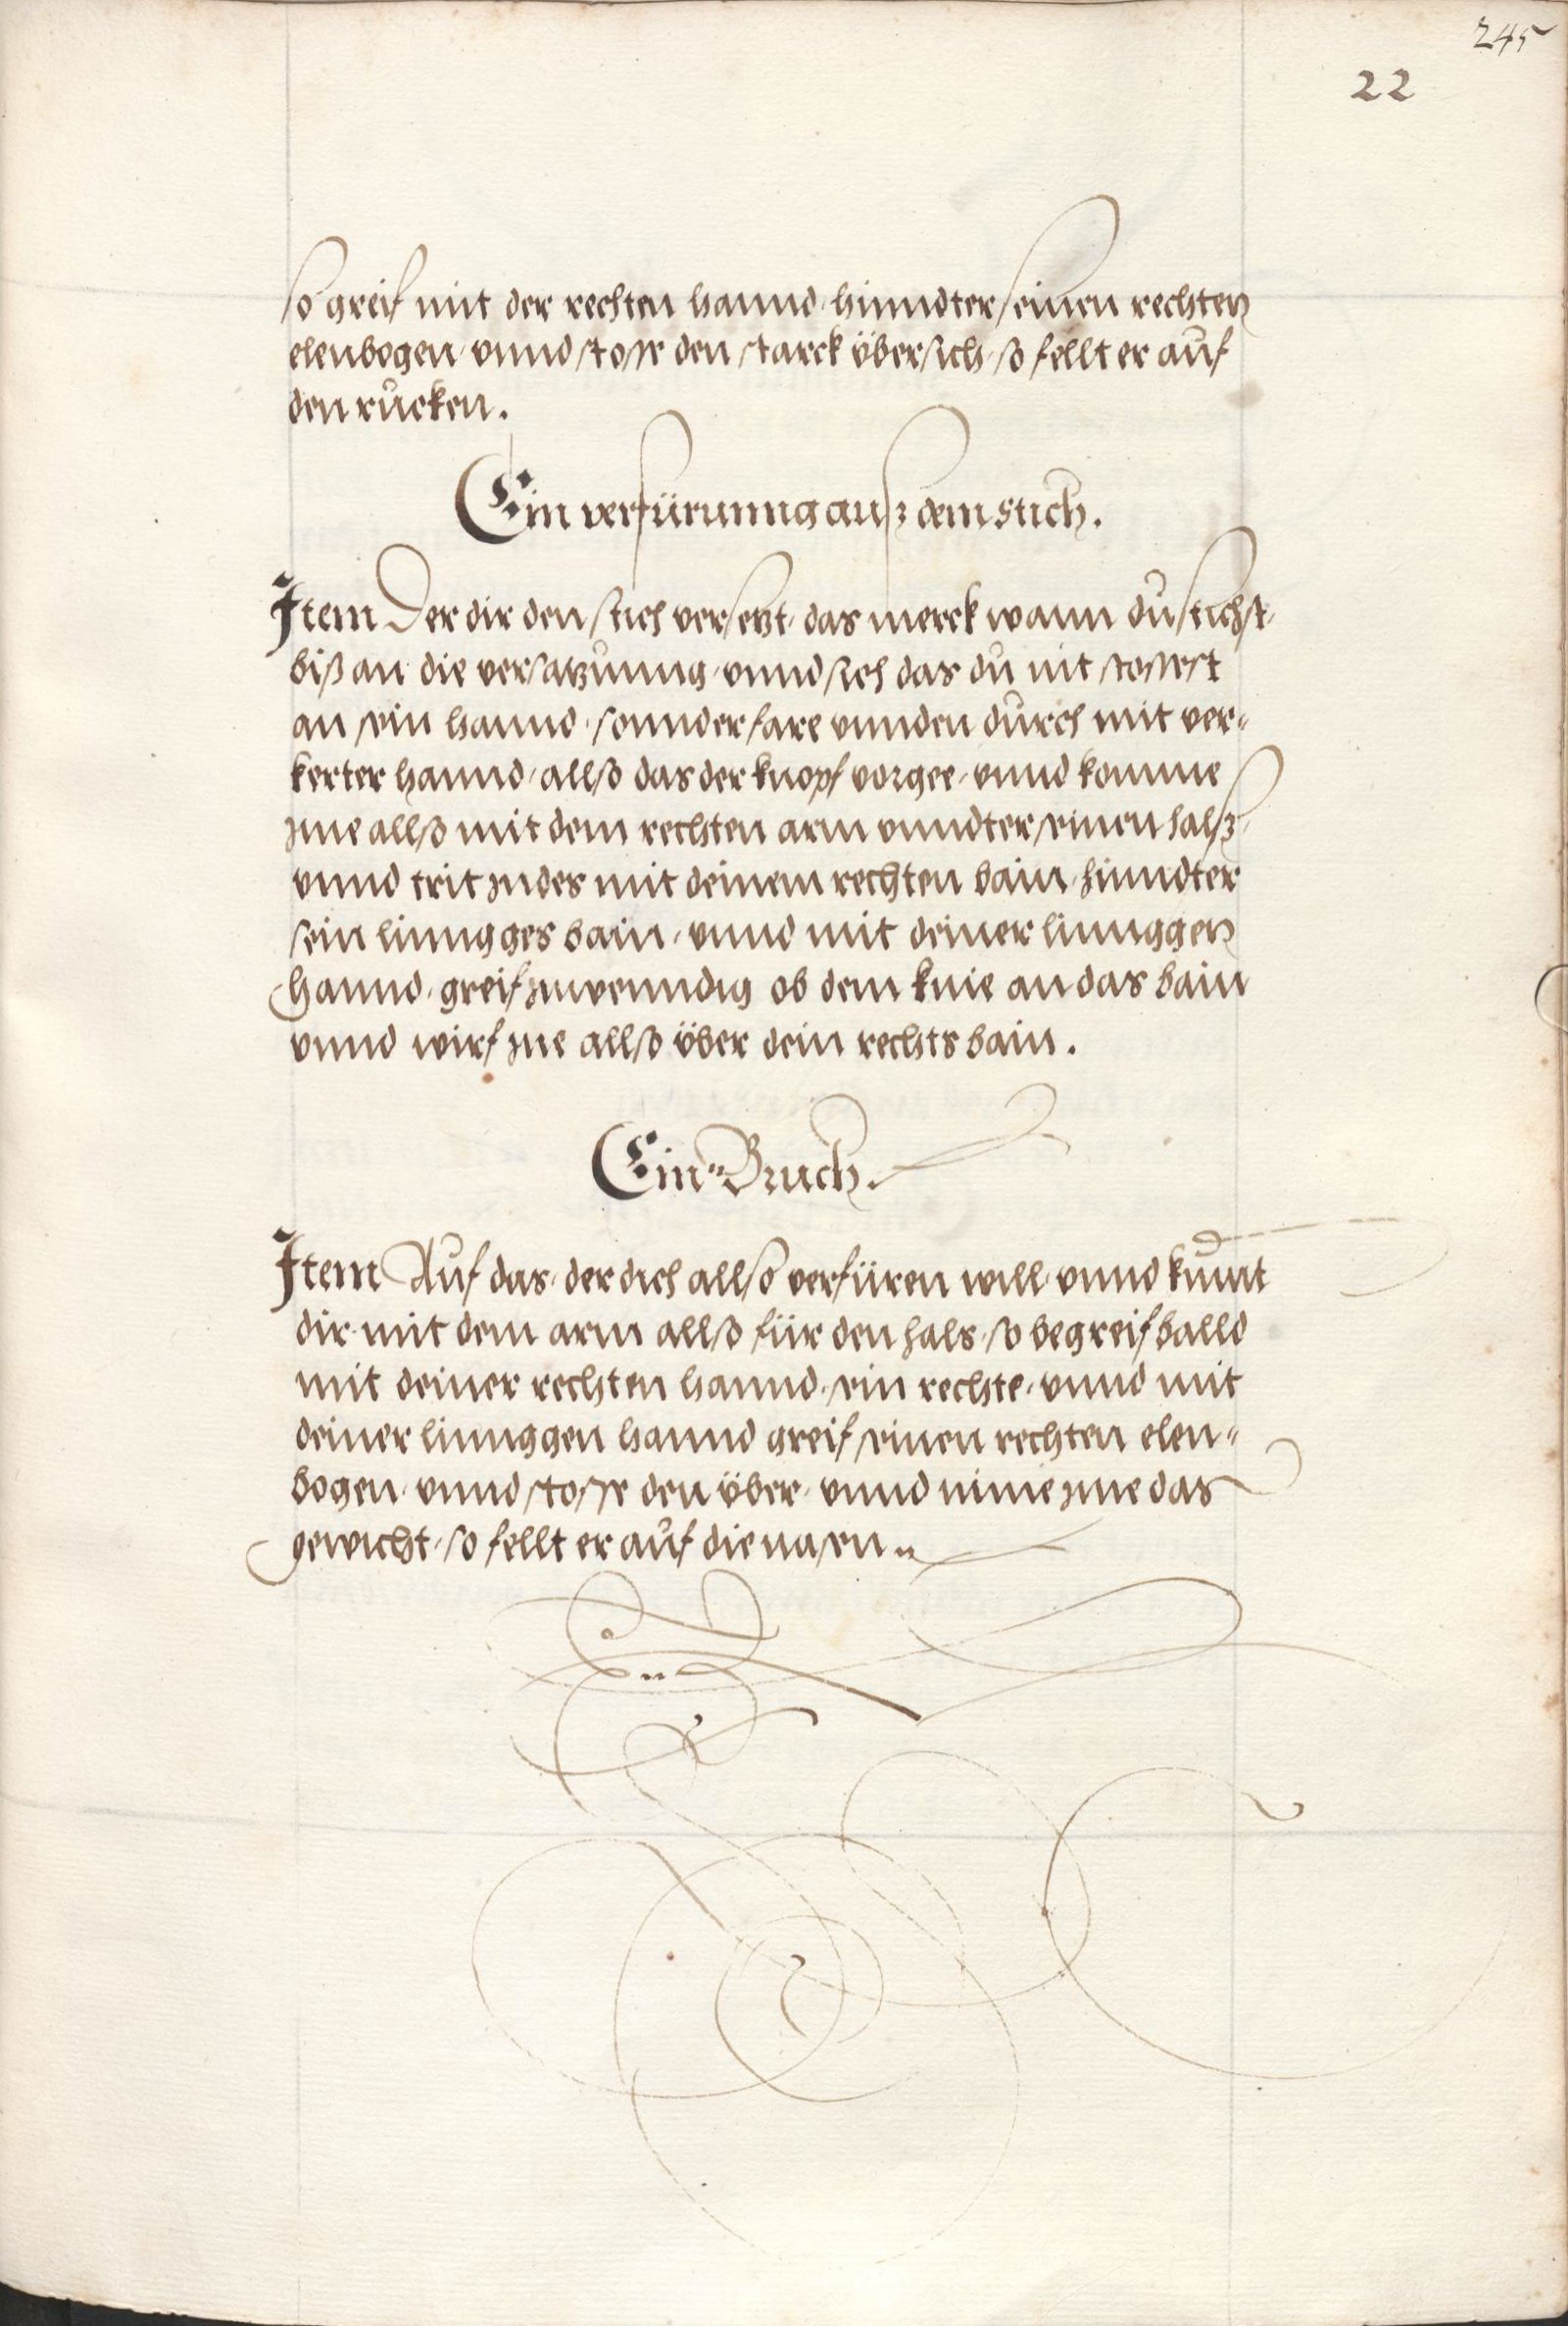 245
22
so greif mit der rechten hannd, hinndter seinen rechten
elenbogen, vnnd stosse den starck übersich, so fellt er auf
den rucken.
Ein verfürunng auß dem stich.
Item Der dir den stich versetzt, das merck wann du stichst,
biß an die versatzunng, vnnd sich das du nit stossest
an sein hannd, sonnder fare vnnden durch mit ver-
kerter hannd, allso das der knopf vorgee, vnnd komme
jme allso mit dem rechten arm vnndter seinen halß,
vnnd trit jndes mit deinem rechten bain, hinndter
sein linngges bain, vnnd mit deiner linnggen
hannd, greif jnwenndig ob dem knie an das bain
vnnd wirf jne allso über dein rechts bain.
Ein Bruch.
Item Auf das, der dich allso verfüren will, vnnd kumt
dir mit dem arm allso für den hals, so begreif balld
mit deiner rechten hannd, sein rechte, vnnd mit
deiner linnggen hannd greif seinen rechten elen-
bogen, vnnd stosse den über, vnnd nime jme das
gewicht, so fellt er auf die nasen.